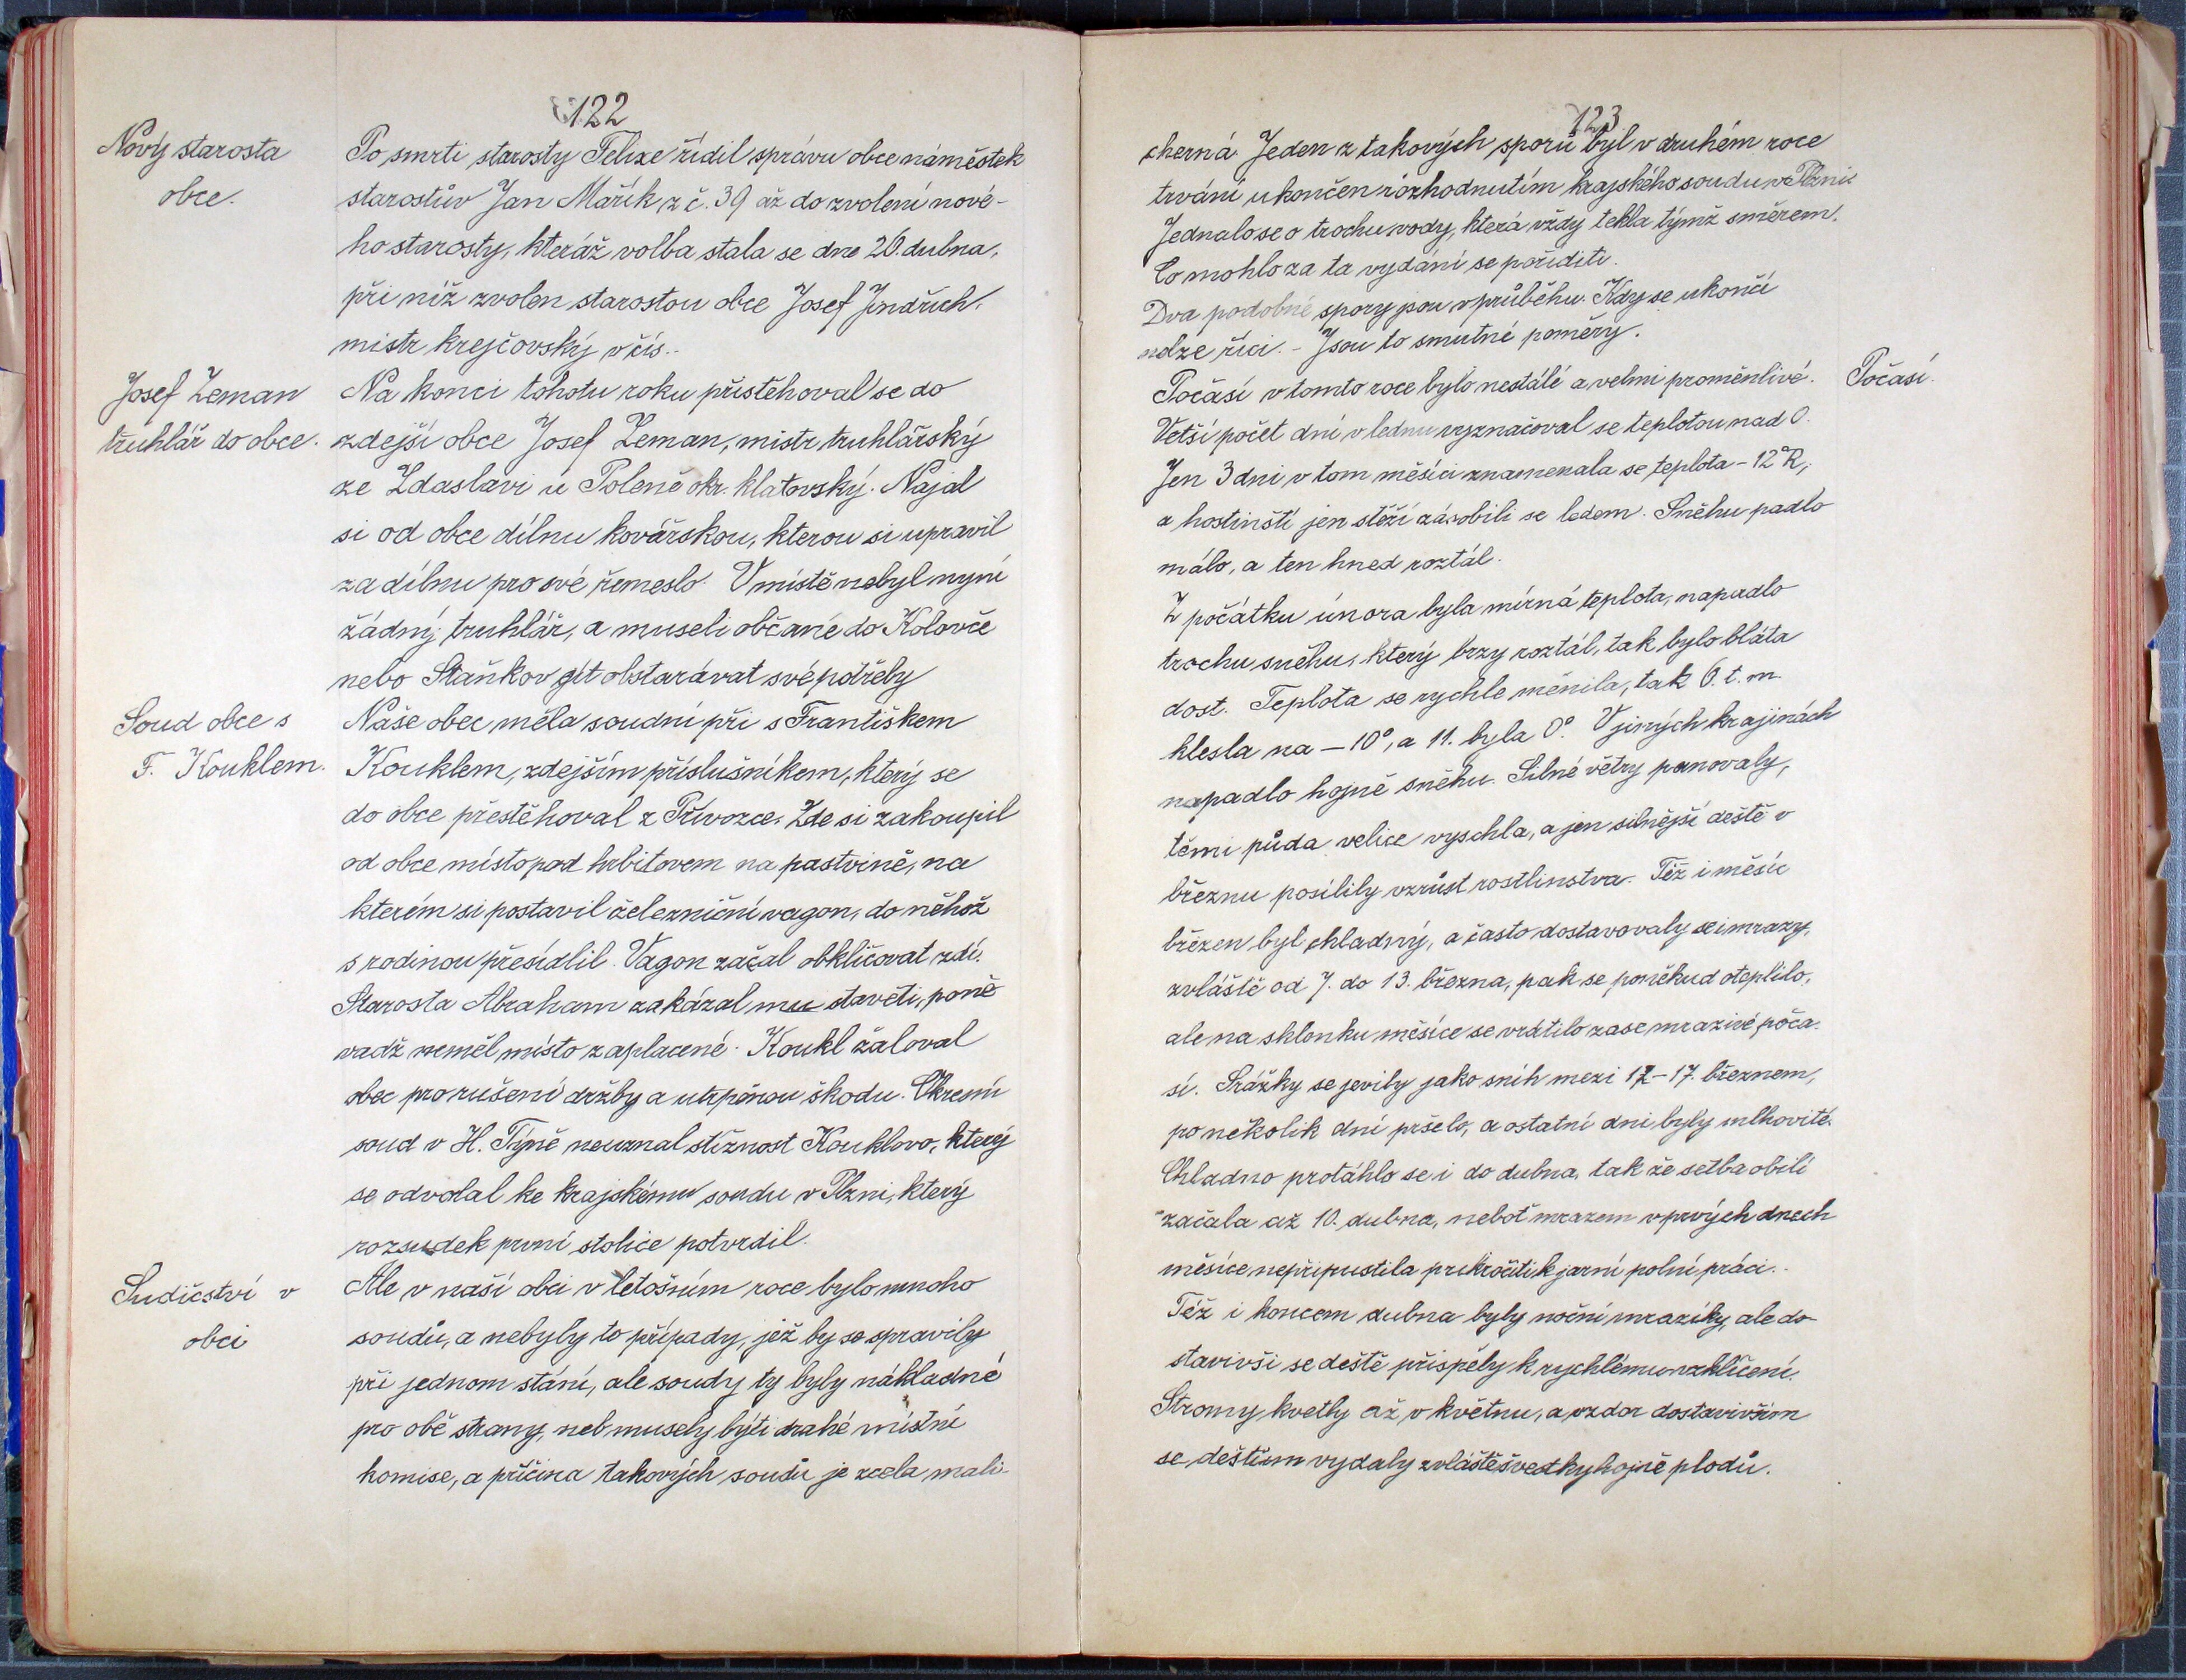 122
Nový starosta
obce.
Po smrti starosty Felixe řídil správu obce náměstek
starostův Jan Mařík z č. 39 až do zvolení nové-
ho starosty, kteráž volba stala se dne 26. dubna,
při níž zvolen starostou obce Josef Jindřich,
mistr krejčovský v čís..
Josef Zeman
truhlář do obce.
Na konci tohotu roku přistěhoval se do
zdejší obce Josef Zeman, mistr truhlářský
ze Zdaslavi u Poleně okr. klatovský. Najal
si od obce dílnu kovářskou, kterou si upravil
za dílnu pro své řemeslo. V místě nebyl nyní
žádný truhlář, a museli občané do Kolovče
nebo Staňkov jít obstarávat své potřeby
Soud obce s
F. Kouklem.
Naše obec měla soudní při s Františkem
Kouklem, zdejším příslušníkem, který se
do obce přestěhoval z Přívozce. Zde si zakoupil
od obce místo pod hrbitovem na pastvině, na
kterém si postavil železniční vagon, do něhož
s rodinou přesídlil. Vagon začal obkličovat zdí.
Starosta Abraham zakázal mu stavěti, poně
vadž neměl místo zaplacené. Koukl žaloval
obec pro rušení držby a utrpěnou škodu. Okresní
soud v H. Týně neuznal stížnost Kouklovo, který
se odvolal ke krajskému soudu v Plzni, který
rozsudek první stolice potvrdil.
Sudičství v
obci
Ale v naší obci v letošním roce bylo mnoho
soudů, a nebyly to případy, jež by se spravily
při jednom stání, ale soudy ty byly nákladné
pro obě strany, neb musely býti drahé místní
komise, a příčina takových soudů je zcela mali-
123
cherná. Jeden z takových sporů byl v druhém roce
trvání ukončen rozhodnutím krajského soudu v Plzni
Jednalo se o trochu vody, která vždy tekla týmž směrem.
Co mohlo za ta vydání se poříditi.
Dva podobné spory jsou v průběhu. Kdy se ukončí
nelze říci. - Jsou to smutné poměry.
Počasí.
Počasí v tomto roce bylo nestálé a velmi proměnlivé.
Vetší počet dní v lednu vyznačoval se teplotou nad 0.
Jen 3 dni v tom měsíci znamenala se teplota - 12°R,
a hostinští jen stěží zásobili se ledem. Sněhu padlo
málo, a ten hned roztál.
Z počátku února byla mírná teplota, napadlo
trochu sněhu, který brzy roztál, tak bylo bláta
dost. Teplota se rychle měnila, tak 6. t. m.
klesla na - 10°, a 11. byla 0°. V jiných krajinách
napadlo hojně sněhu. Silné větry panovaly,
těmi půda velice vyschla, a jen silnější deště v
březnu posílily vzrůst rostlinstva. Též i měsíc
březen byl chladný, a často dostavovaly se i mrazy,
zvláště od 7. do 13. března, pak se poněkud oteplilo,
ale na sklonku měsíce se vrátilo zase mrazivé poča-
sí. Srážky se jevily jako sníh mezi 12-17. březnem,
po několik dní pršelo, a ostatní dni byly mlhovité.
Chladno protáhlo se i do dubna, tak že setba obilí
začala až 10. dubna, neboť mrazem v prvých dnech
měsíce nepřipustila prikročiti k jarní polní práci..
Též i koncem dubna byly noční mrazíky, ale do-
stavivši se deště přispěly k rychlému vzklíčení.
Stromy kvetly až v květnu, a vzdor dostavivším
se deštům vydaly zvláště švestky hojně plodů.